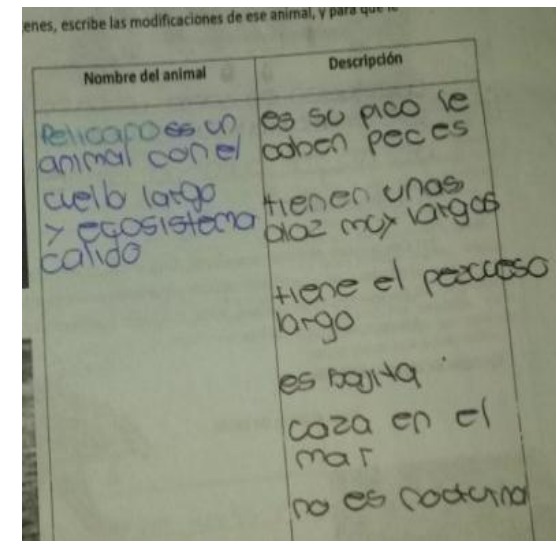 enes, escribe las modificaciones de ese animal, y para que l
Nombre del animal
Descripción
Pelicano es un
animal con el
cuello largo
y ecosistema
calido
es su pico le
caben peces
tienen unas
alaz muy largas
tiene el
largo
es bajita
caza en el
mar
no es nocturna